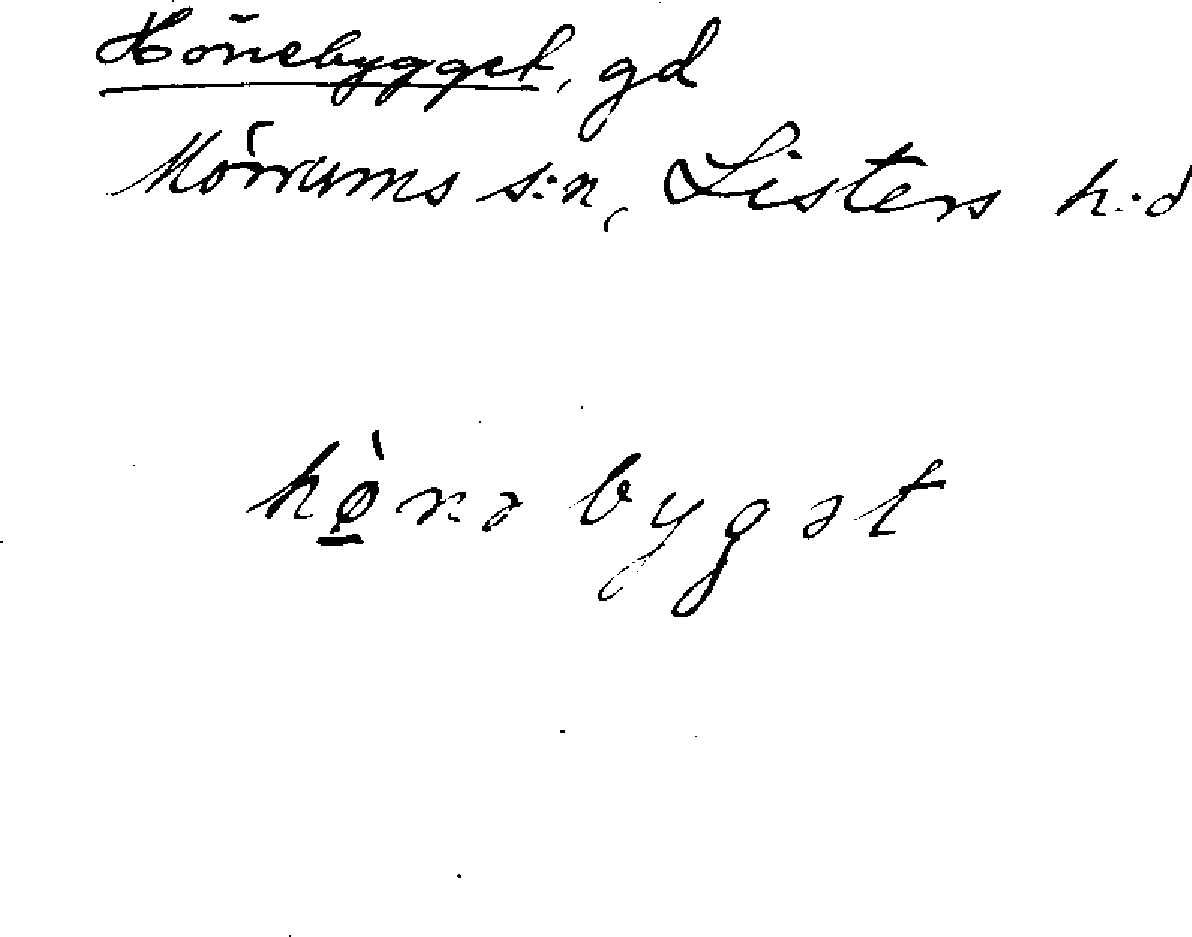 Hönebygget, gd
Mörrums s:n, Listers h:d
hø̀nə bygət